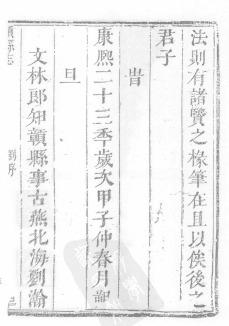 法則有諸賢之椽筆在且以俟後之
君子
旹
康熙二十三年歲次甲子仲春月穀
旦
文林郎知贛縣事古燕北海劉瀚
贛縣志
劉序